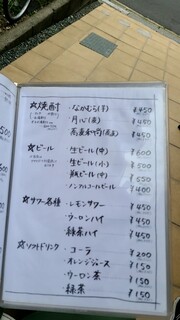 ☆焼酎
・なかむら(芋) ¥450
・月心(麦) ¥450
¥450
☆ビール
・生ビール(中) ¥600
・生ビール(小) ¥500
・瓶ビール(中) ¥650
・ノンアルコールビール ¥400
☆サワー各種
・レモンサワー ¥450
・ウーロンハイ ¥450
・緑茶ハイ ¥450
☆ソフトドリンク
・コーラ ¥200
・オレンジジュース ¥150
・ウーロン茶 ¥150
・緑茶 ¥150